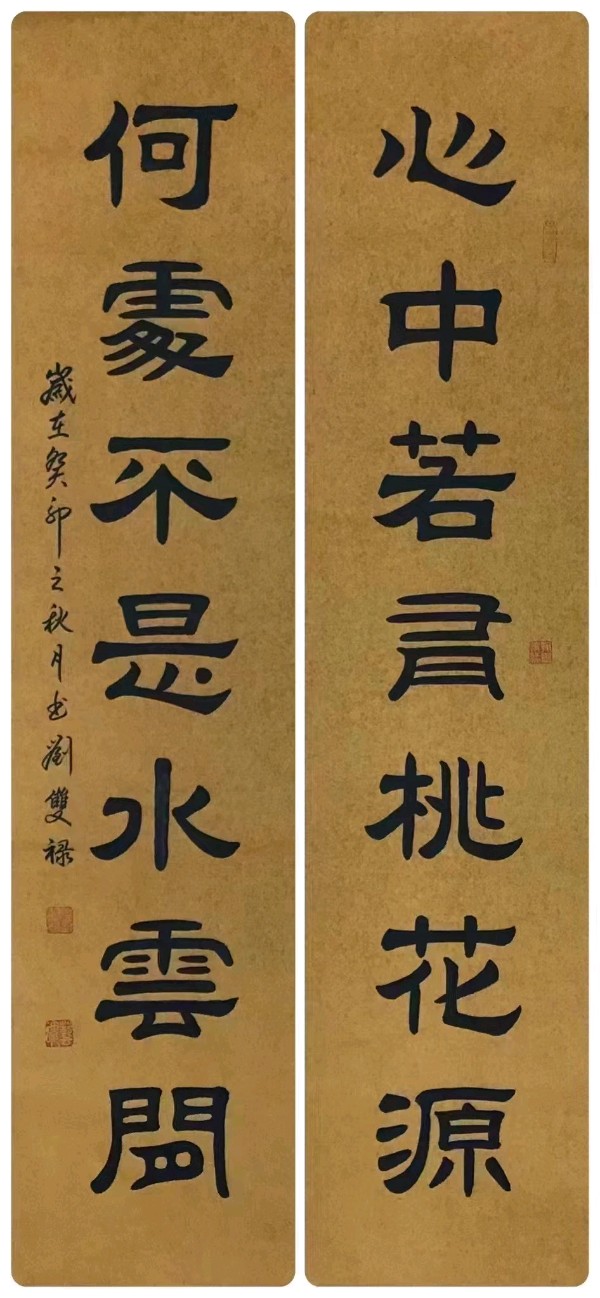 心中若有桃花源
何處不是水雲間
歲在癸卯之秋月書劉雙祿